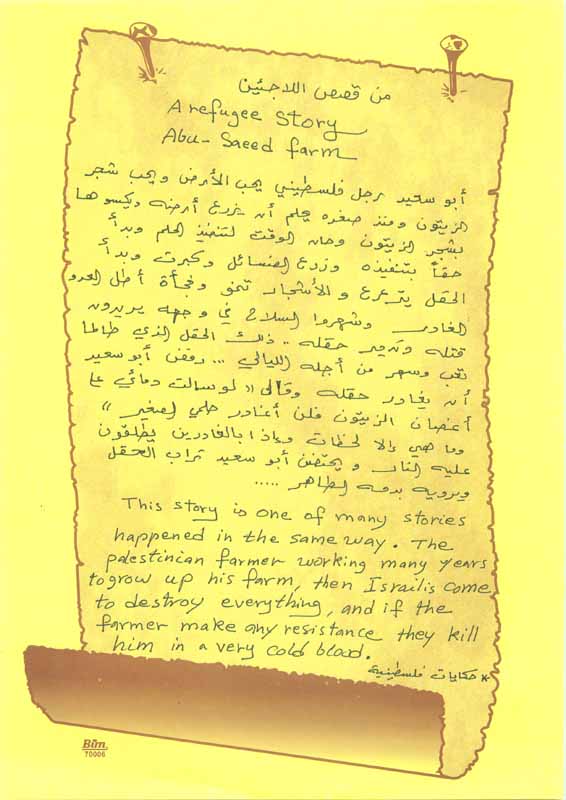 من قصص اللاجئين
A refugee Story
Abu-Saeed farm
أبو سعيد رجل فلسطيني يحب الأرض ويحب شجر
الزيتون ومنذ صغره يحلم أن يزرع أرضه ويكسوها
بشجر الزيتون وحان الوقت لتنفيذ الحلم وبدأ
حقاً بتنفيذه وزرع الفسائل وكبرت وبدأ
الحقل يترعرع والأشجار تنمو وفجأة أطل العدو
الغادر وشهروا السلاح في وجهه يريدون
قتله وتدمير حقله .. ذلك الحقل الذي طالما
تعب وسهر من أجله الليالي ... رفض أبو سعيد
أن يغادر حقله وقال « لو سالت دمائي على
أغصان الزيتون فلن أغادر حلمي الصغير »
وما هي إلا لحظات وإذا بالغادرين يطلقون
عليه النار ويحتضن أبو سعيد تراب الحقل
ويرويه بدمه الطاهر .....
This story is one of many stories
happened in the same way. The
palestinian farmer working many years
to grow up his farm, then Israilis come
to destroy everything, and if the
farmer make any resistance they kill
him in a very cold blood.
* حكايات فلسطينية
Bim
70006